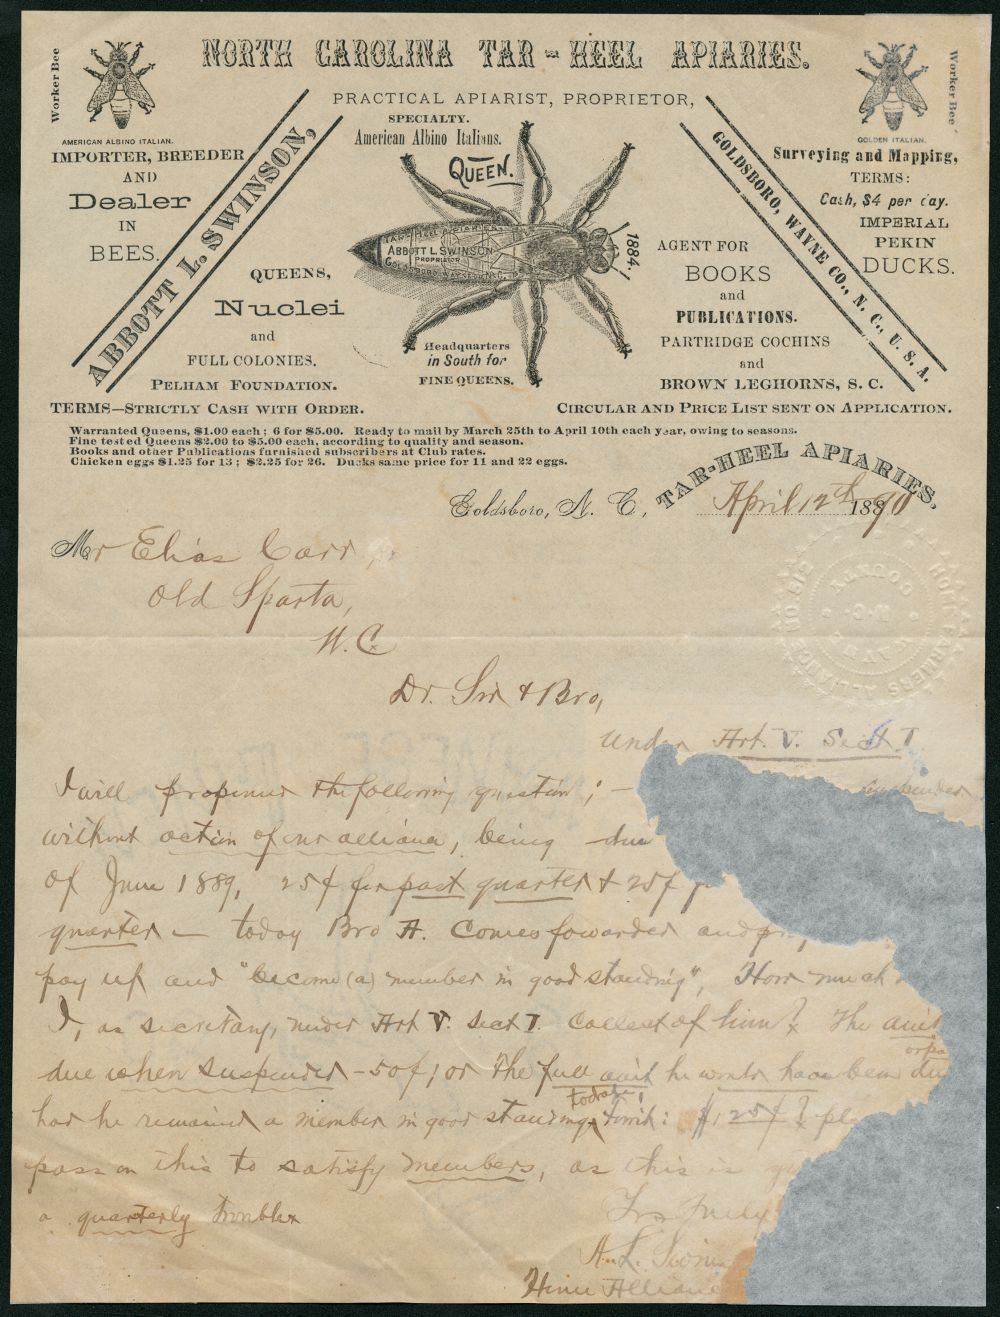 NORTH CAROLINA TAR-HEEL APIARIES.
PRACTICAL APIARIST, PROPRIETOR,
Worker Bee
AMERICAN ALBINO ITALIAN.
IMPORTER, BREEDER
AND
Dealer
IN
BEES.
ABBOTT L. SWINSON,
QUEENS,
Nuclei
and
FULL COLONIES.
PELHAM FOUNDATION.
SPECIALTY.
American Albino Italians.
QUEEN.
TAR-HEEL APIARIES
ABBOTT L SWINSON
PROPRIETOR
GOLDSBORO, WAYNE CO. N.C.
1884
Headquarters
in South for
FINE QUEENS.
GOLDSBORO, WAYNE CO., N. C., U. S. A.
AGENT FOR
BOOKS
and
PUBLICATIONS.
PARTRIDGE COCHINS
and
BROWN LEGHORNS, S. C.
Worker Bee
GOLDEN ITALIAN.
Surveying and Mapping,
TERMS:
Cash, $4 per day.
IMPERIAL
PEKIN
DUCKS.
TERMS—STRICTLY CASH WITH ORDER.
CIRCULAR AND PRICE LIST SENT ON APPLICATION.
Warranted Queens, $1.00 each; 6 for $5.00. Ready to mail by March 25th to April 10th each year, owing to seasons.
Fine tested Queens $2.00 to $5.00 each, according to quality and season.
Books and other Publications furnished subscribers at Club rates.
Chicken eggs $1.25 for 13; $2.25 for 26. Ducks same price for 11 and 22 eggs.
TAR-HEEL APIARIES,
Goldsboro, N. C., April 12th 1890
Mr Elias Carr
Old Sparta,
N. C.
Dr. Sir & Bro,
Under Art. V. Sect I
I will propound the following question; — suspended
without action of our alliance, being due
of June 1889, 25¢ for past quarter & 25¢
quarter — today Bro A. Comes fowarded and
pay up and "become (a) member in good standing", How much
I, as secretary, under Art V. Sect I. Collect of him? The amt
due when suspended - 50¢; or the full amt he would have been du
had he remained a member in good standing, todate, $1.25¢?
pass on this to satisfy members, as this is
a quarterly trouble
Yrs Truly
A. L. Swin
HOPE FARMERS ALLIANCE NO. 512
WAYNE COUNTY
N.C.